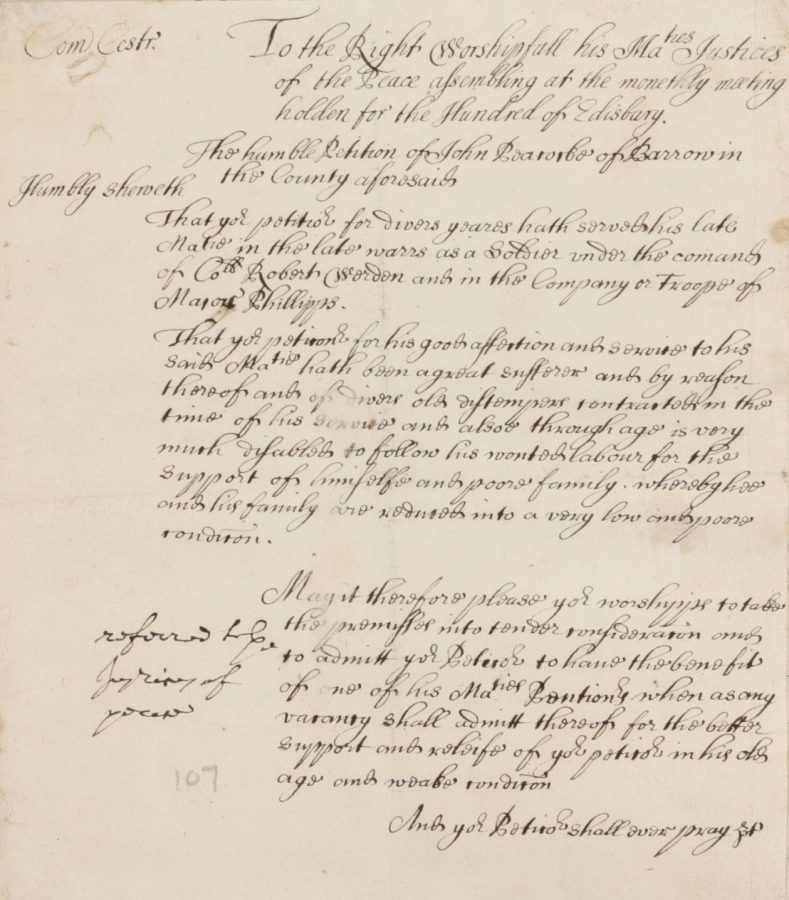 Com Cestr.
To the Right Worshipfull his Maties Justices
of the Peace assembling at the monethly meeting
holden for the Hundred of Edisbury.
The humble Petition of John Peacocke of Barrow in
the County aforesaid
Humbly sheweth
That yor petitior for divers yeares hath served his late
Matie in the late warrs as a Soldier vnder the comand
of Coll Robert Werden and in the Company or Troope of
Major Phillipps.
That yor peticonr for his good affection and service to his
said Matie hath been a great sufferer and by reason
thereof and of divers old distempers contracted in the
time of his service and alsoe through age is very
much disabled to follow his wonted labour for the
support of himselfe and poore family. whereby hee
and his family are reduced into a very low and poore
condicon.
May it therefore please yor worshipps to take
the premisses into tender consideracon and
to admitt yor Peticor to haue the benefit
of one of his Maties Pentions when as any
vacancy shall admitt thereof for the better
support and releife of yor peticor in his old
age and weake condicon
And yor Peticor shall ever pray &c
referred to the
Justices of
peace
107